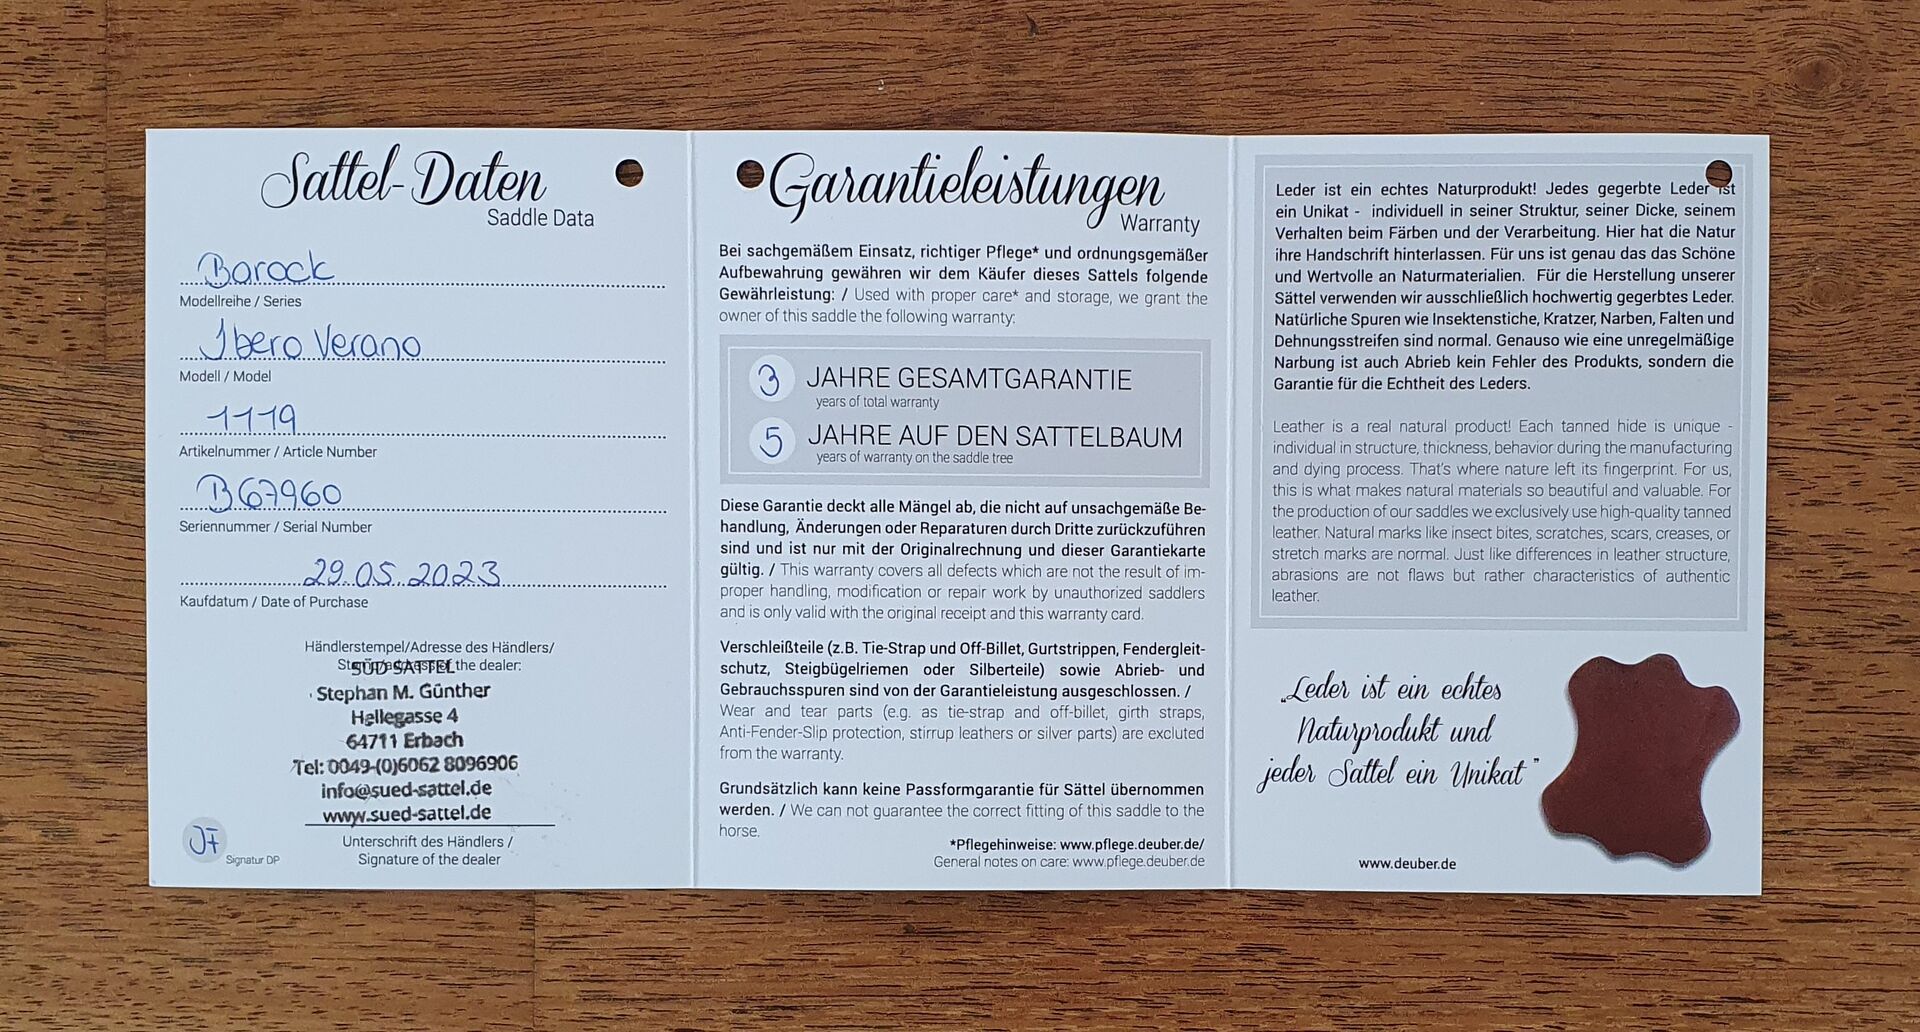 Sattel-Daten
Saddle Data
Barock
Modellreihe / Series
Ibero Verano
Modell / Model
1119
Artikelnummer / Article Number
B67960
Seriennummer / Serial Number
29.05.2023
Kaufdatum / Date of Purchase
Händlerstempel/Adresse des Händlers/
Stamp/address of the dealer:
SÜD-SATTEL
Stephan M. Günther
Hellegasse 4
64711 Erbach
Tel: 0049-(0)6062 8096906
info@sued-sattel.de
www.sued-sattel.de
Unterschrift des Händlers /
Signature of the dealer
JF
Signatur DP
Garantieleistungen
Warranty
Bei sachgemäßem Einsatz, richtiger Pflege* und ordnungsgemäßer
Aufbewahrung gewähren wir dem Käufer dieses Sattels folgende
Gewährleistung: / Used with proper care* and storage, we grant the
owner of this saddle the following warranty:
3 JAHRE GESAMTGARANTIE
years of total warranty
5 JAHRE AUF DEN SATTELBAUM
years of warranty on the saddle tree
Diese Garantie deckt alle Mängel ab, die nicht auf unsachgemäße Be-
handlung, Änderungen oder Reparaturen durch Dritte zurückzuführen
sind und ist nur mit der Originalrechnung und dieser Garantiekarte
gültig. / This warranty covers all defects which are not the result of im-
proper handling, modification or repair work by unauthorized saddlers
and is only valid with the original receipt and this warranty card.
Verschleißteile (z.B. Tie-Strap und Off-Billet, Gurtstrippen, Fendergleit-
schutz, Steigbügelriemen oder Silberteile) sowie Abrieb- und
Gebrauchsspuren sind von der Garantieleistung ausgeschlossen. /
Wear and tear parts (e.g. as tie-strap and off-billet, girth straps,
Anti-Fender-Slip protection, stirrup leathers or silver parts) are excluted
from the warranty.
Grundsätzlich kann keine Passformgarantie für Sättel übernommen
werden. / We can not guarantee the correct fitting of this saddle to the
horse.
*Pflegehinweise: www.pflege.deuber.de/
General notes on care: www.pflege.deuber.de
Leder ist ein echtes Naturprodukt! Jedes gegerbte Leder ist
ein Unikat - individuell in seiner Struktur, seiner Dicke, seinem
Verhalten beim Färben und der Verarbeitung. Hier hat die Natur
ihre Handschrift hinterlassen. Für uns ist genau das das Schöne
und Wertvolle an Naturmaterialien. Für die Herstellung unserer
Sättel verwenden wir ausschließlich hochwertig gegerbtes Leder.
Natürliche Spuren wie Insektenstiche, Kratzer, Narben, Falten und
Dehnungsstreifen sind normal. Genauso wie eine unregelmäßige
Narbung ist auch Abrieb kein Fehler des Produkts, sondern die
Garantie für die Echtheit des Leders.
Leather is a real natural product! Each tanned hide is unique -
individual in structure, thickness, behavior during the manufacturing
and dying process. That's where nature left its fingerprint. For us,
this is what makes natural materials so beautiful and valuable. For
the production of our saddles we exclusively use high-quality tanned
leather. Natural marks like insect bites, scratches, scars, creases, or
stretch marks are normal. Just like differences in leather structure,
abrasions are not flaws but rather characteristics of authentic
leather.
„Leder ist ein echtes
Naturprodukt und
jeder Sattel ein Unikat"
www.deuber.de